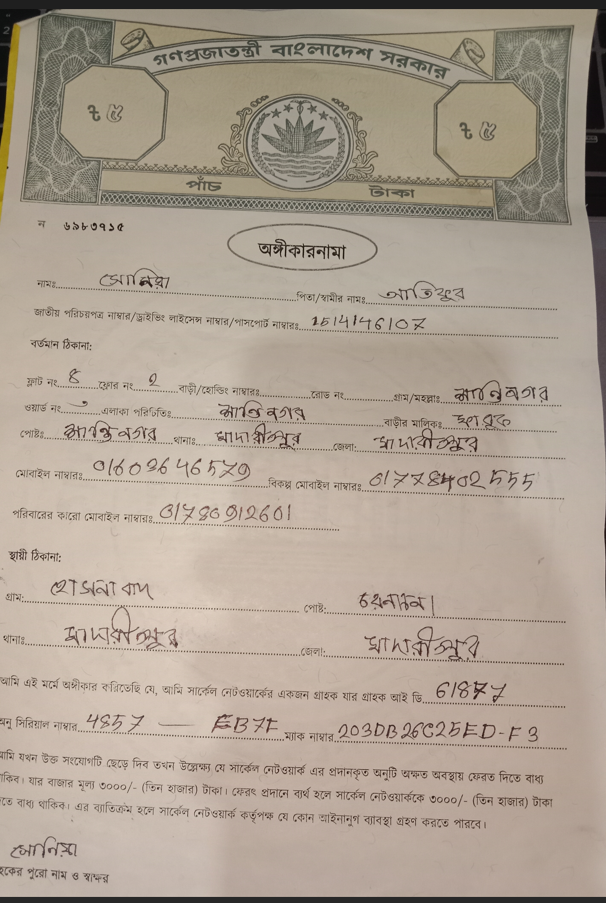 গণপ্রজাতন্ত্রী বাংলাদেশ সরকার
৳ ৫
৳ ৫
পাঁচ টাকা
ন ৬৯৮৩৭১৫
অঙ্গীকারনামা
নামঃ সোনিয়া পিতা/স্বামীর নামঃ আতিকুর
জাতীয় পরিচয়পত্র নাম্বার/ড্রাইভিং লাইসেন্স নাম্বার/পাসপোর্ট নাম্বারঃ 1514146107
বর্তমান ঠিকানা:
ফ্লাট নং ৪ ফ্লোর নং 2 বাড়ী/হোল্ডিং নাম্বারঃ রোড নং গ্রাম/মহল্লাঃ শান্তিনগর
ওয়ার্ড নং এলাকা পরিচিতিঃ শান্তিনগর বাড়ীর মালিকঃ ফারুক
পোষ্টঃ শান্তিনগর থানাঃ মাদারীপুর জেলা: মাদারীপুর
মোবাইল নাম্বারঃ 01602646579 বিকল্প মোবাইল নাম্বারঃ 01778402555
পরিবারের কারো মোবাইল নাম্বারঃ 01780912601
স্থায়ী ঠিকানা:
গ্রাম: হোসনাবাদ পোষ্ট:
থানাঃ মাদারীপুর জেলা: মাদারীপুর
আমি এই মর্মে অঙ্গীকার করিতেছি যে, আমি সার্কেল নেটওয়ার্কের একজন গ্রাহক যার গ্রাহক আই ডি 61877
অনু সিরিয়াল নাম্বার 4857 — EB7F ম্যাক নাম্বার 203DB26C25ED-F3
আমি যখন উক্ত সংযোগটি ছেড়ে দিব তখন উল্লেক্ষ্য যে সার্কেল নেটওয়ার্ক এর প্রদানকৃত অনুটি অক্ষত অবস্থায় ফেরত দিতে বাধ্য
াকিব। যার বাজার মূল্য ৩০০০/- (তিন হাজার) টাকা। ফেরৎ প্রদানে ব্যর্থ হলে সার্কেল নেটওয়ার্ককে ৩০০০/- (তিন হাজার) টাকা
িতে বাধ্য থাকিব। এর ব্যাতিক্রম হলে সার্কেল নেটওয়ার্ক কর্তৃপক্ষ যে কোন আইনানুগ ব্যাবস্থা গ্রহণ করতে পারবে।
সোনিয়া
হকের পুরো নাম ও স্বাক্ষর